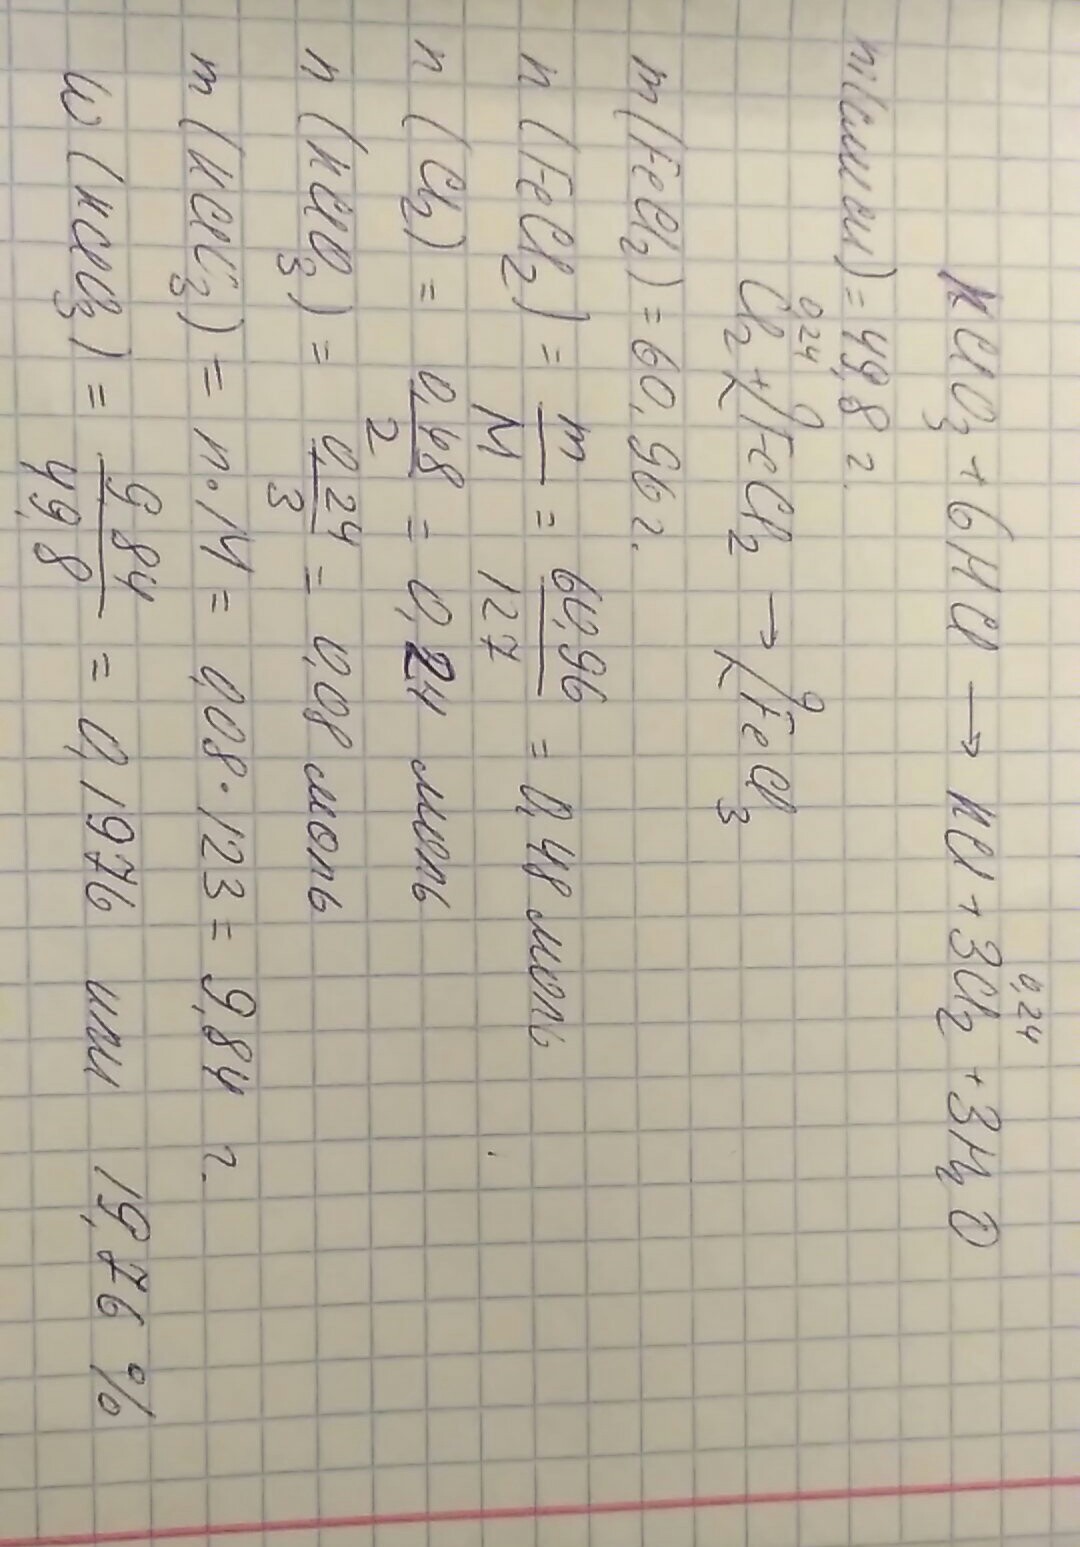 0,24
KClO3 + 6HCl → KCl + 3Cl2 + 3H2O
m(смеси) = 49,8 г.
0,24
Cl2 + 2FeCl2 → 2FeCl3
m(FeCl2) = 60,96 г.
n(FeCl2) = m/M = 60,96/127 = 0,48 моль
n(Cl2) = 0,48/2 = 0,24 моль
n(KClO3) = 0,24/3 = 0,08 моль
m(KClO3) = n·M = 0,08·123 = 9,84 г.
W(KClO3) = 9,84/49,8 = 0,1976 или 19,76 %